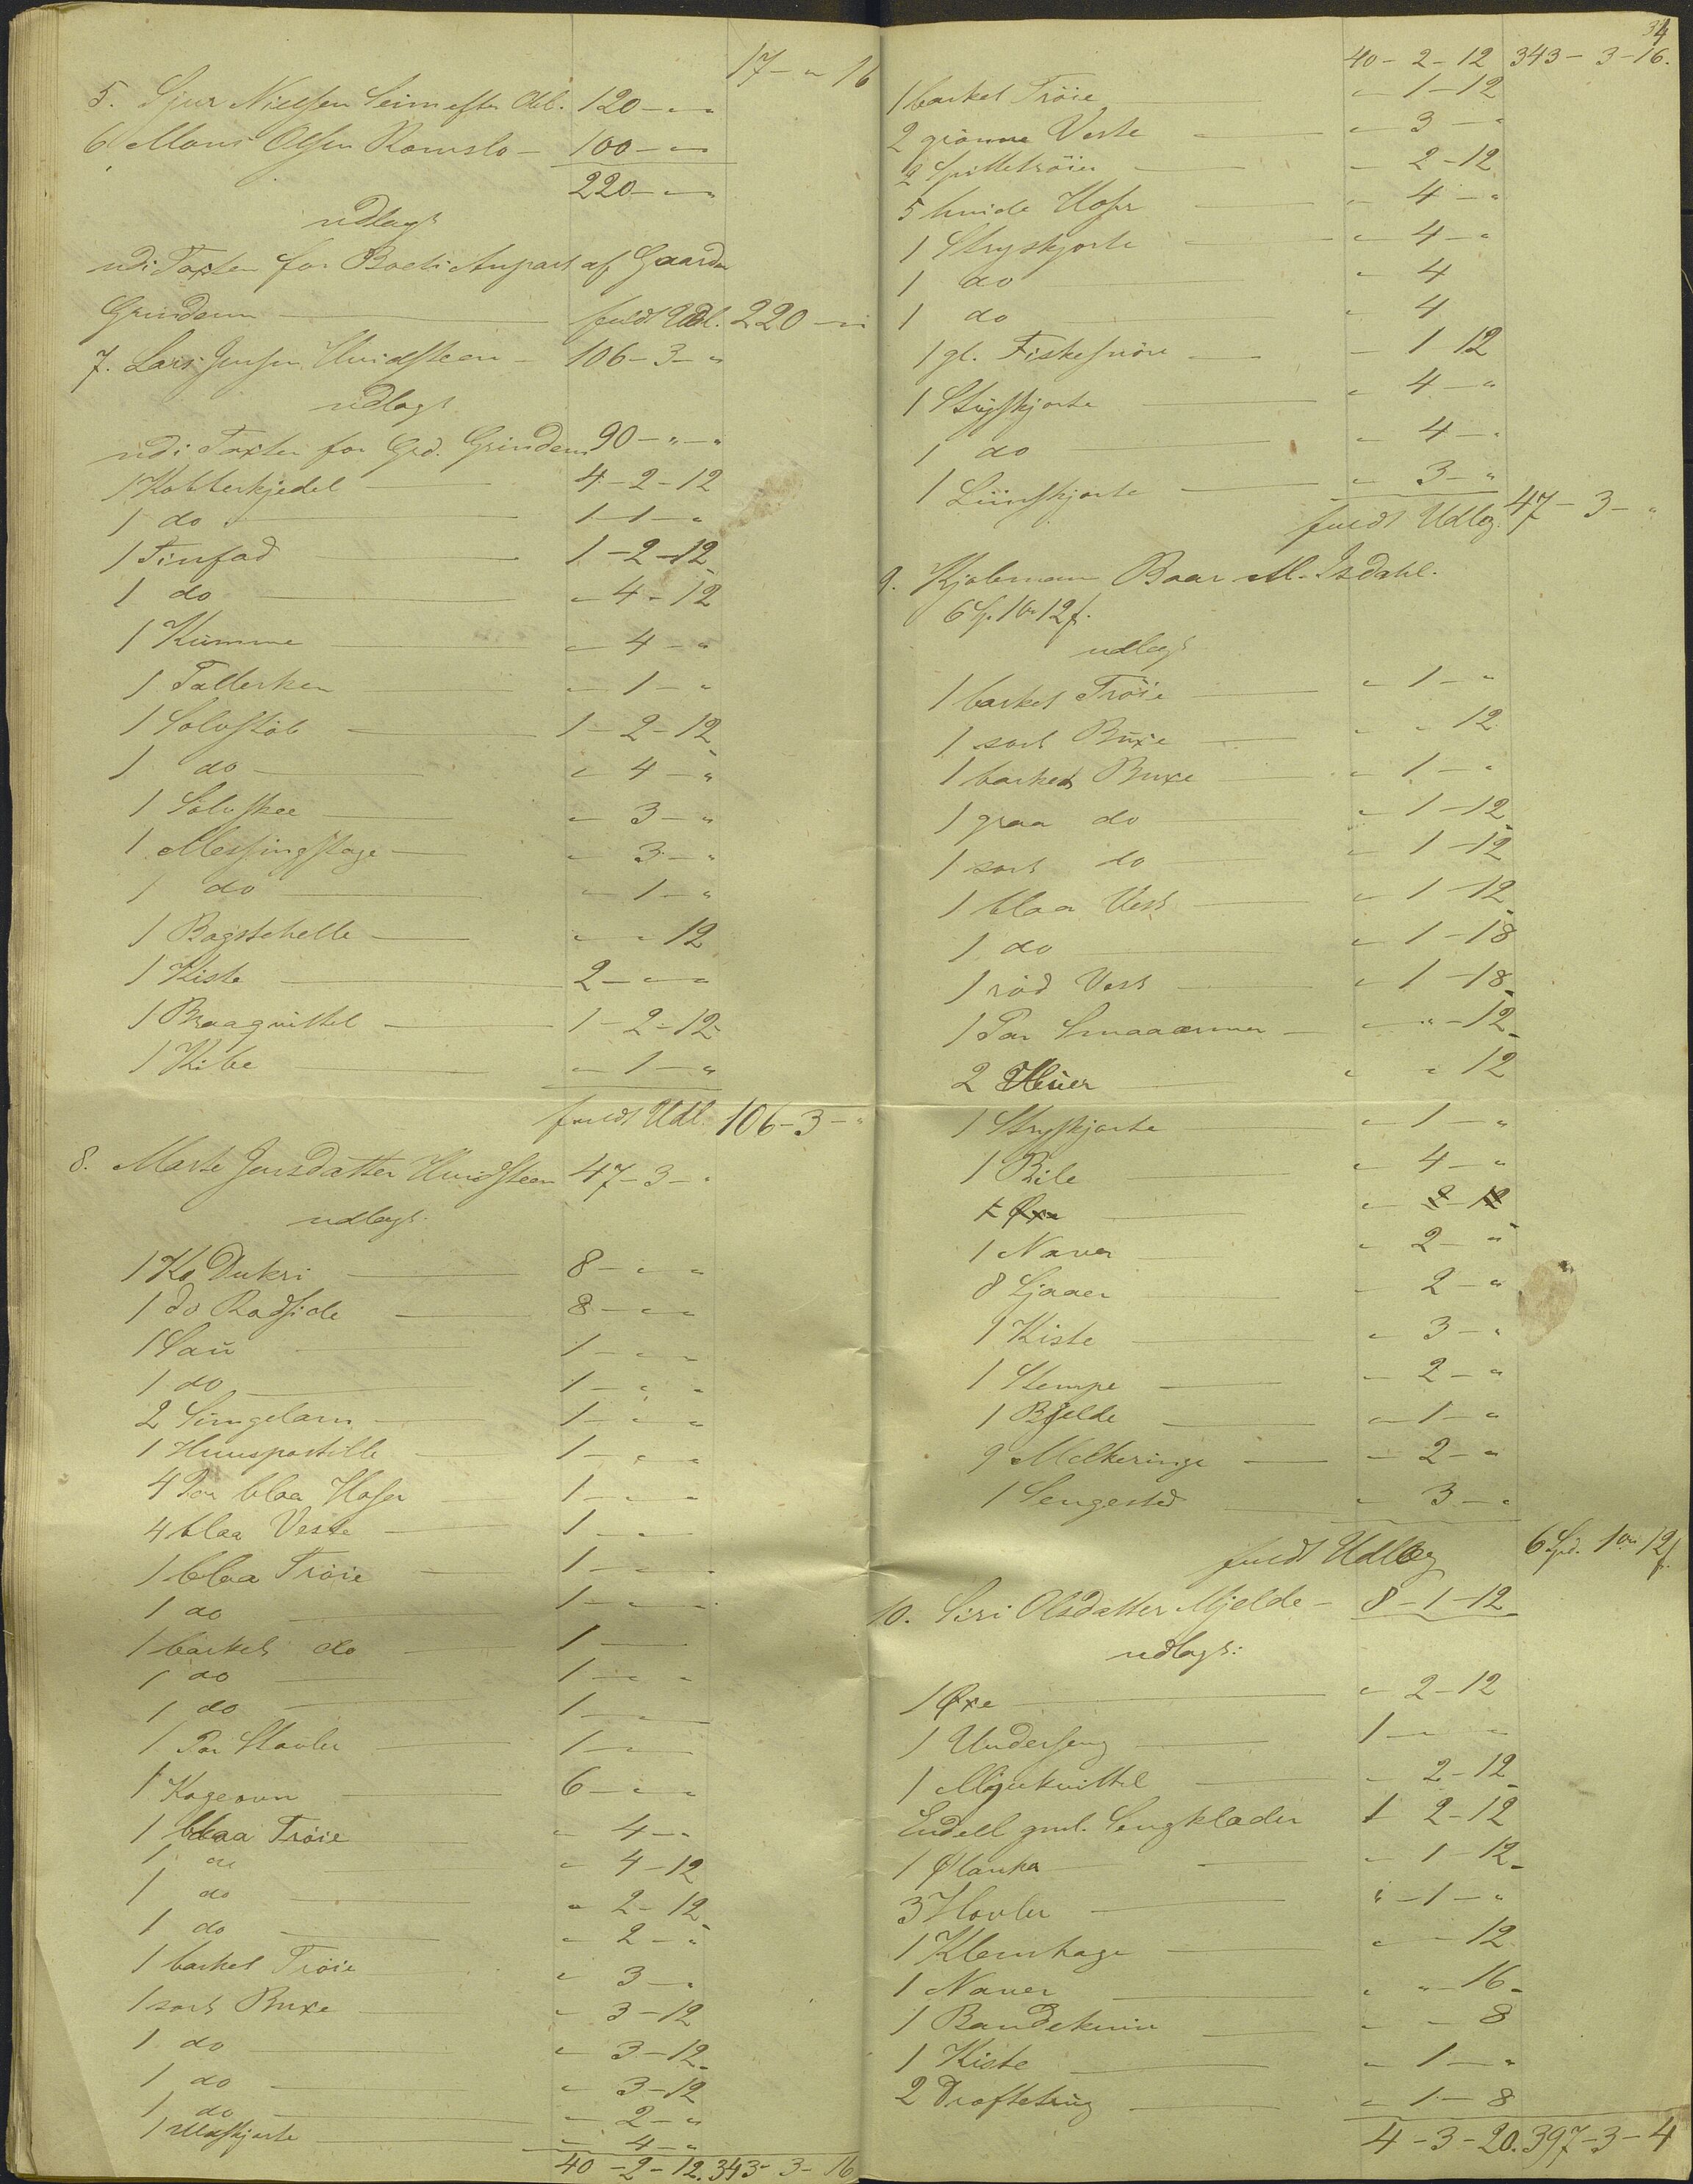 17 - " 16
5. Sjur Nielsen Seim efter Obl. 120 - " - "
6. Mons Olsen Romslo - 100 - " - "
220 - " - "
udlagt
udi Taxten for Boets Anpart af Gaarden
Grindem fuldt Udl. 220 - " - "
7. Lars Jensen Hvidsteen - 106 - 3 - "
udlagt
udi Taxten for Grd. Grindem 90 - " - "
1 Kobberkjedel 4 - 2 - 12
1 do 1 - 1 - "
1 Tinfad 1 - 2 - 12
1 do " - 4 - 12
1 Kumme " - 4 - "
1 Tallerken " - 1 - "
1 Sølvstøb 1 - 2 - 12
1 do " - 4 - "
1 Sølvskee " - 3 - "
1 Messingstage " - 3 - "
1 do " - 1 - "
1 Bagstehelle " - " - 12
1 Kiste 2 - " - "
1 Braagvittel 1 - 2 - 12
1 Kibe " - 1 - "
fuldt Udl. 106 - 3 - "
8. Marte Jensdatter Hvidsteen 47 - 3 - "
udlagt.
1 Ko Dukri 8 - " - "
1 do Rødside 8 - " - "
1 Sau 1 - " - "
1 do 1 - " - "
2 Gimgelam 1 - " - "
1 Huuspostille 1 - " - "
4 Par blaa Hoser 1 - " - "
4 blaa Veste 1 - " - "
1 blaa Trøie 1 - " - "
1 do 1 - " - "
1 barket do 1 - " - "
1 do 1 - " - "
1 do 1 - " - "
1 Par Støvler 1 - " - "
1 Kogeovn 6 - " - "
1 blaa Trøie " - 4 - "
1 do " - 4 - 12
1 do " - 2 - 12
1 do " - 2 - "
1 barket Trøie " - 3 - "
1 sort Buxe " - 3 - 12
1 do " - 3 - 12
1 do " - 3 - 12
1 do " - 2 - "
1 Uldskjorte " - 4 - "
40 - 2 - 12. 343 - 3 - 16
34
40 - 2 - 12 343 - 3 - 16.
1 barket Trøie " - 1 - 12
2 grønne Veste " - 3 - "
2 Spittetrøier " - 2 - 12
5 hvide Hoser " - 4 - "
1 Stryskjorte " - 4 - "
1 do " 4
1 do " 4
1 gl. Fiskesnøre - 1 - 12
1 Stryskjorte " 4 - "
1 do " 4 - "
1 Liinskjorte " - 3 - "
fuldt Udlæg. 47 - 3 - "
9. Kjøbmann Baar M. Isdahl.
6 Sp. 1 or 12 s.
udlagt
1 barket Trøie " - 1 - "
1 sort Buxe " - " 12
1 barket Buxe " - 1 - "
1 graa do " - 1 - 12
1 sort do " - 1 - 12
1 blaa Vest " - 1 - 12
1 do " - 1 - 18
1 rød Vest " - 1 - 18
1 Par Smaaærmer " - " - 12
2 Huer " " 12
1 Stryskjorte " - 1 - "
1 Bile " - 4 - "
1 Øxe " - 2 - 12
1 Naver " 2 - "
8 Ljaaer " 2 - "
1 Kiste " 3 - "
1 Stempe " - 2 - "
1 Bjelde " - 1 - "
9 Melkeringe " - 2 - "
1 Sengested " 3 - "
fuldt Udlæg 6 Spd. 1 or 12 s.
10. Siri Olsdatter Mjelde - 8 - 1 - 12
udlagt:
1 Øxe " - 2 - 12
1 Underseng 1 - " - "
1 Mjukvittel " 2 - 12
Endell gml. Sengklæder 1 2 - 12
1 Ølanka " - 1 - 12
3 Høvler " - 1 - "
1 Klemhage " - 12
1 Naver " " - 16
1 Baandekniv " - 8
1 Kiste " - 1 - "
2 Drøftetrug " - 1 - 8
4 - 3 - 20. 397 - 3 - 4